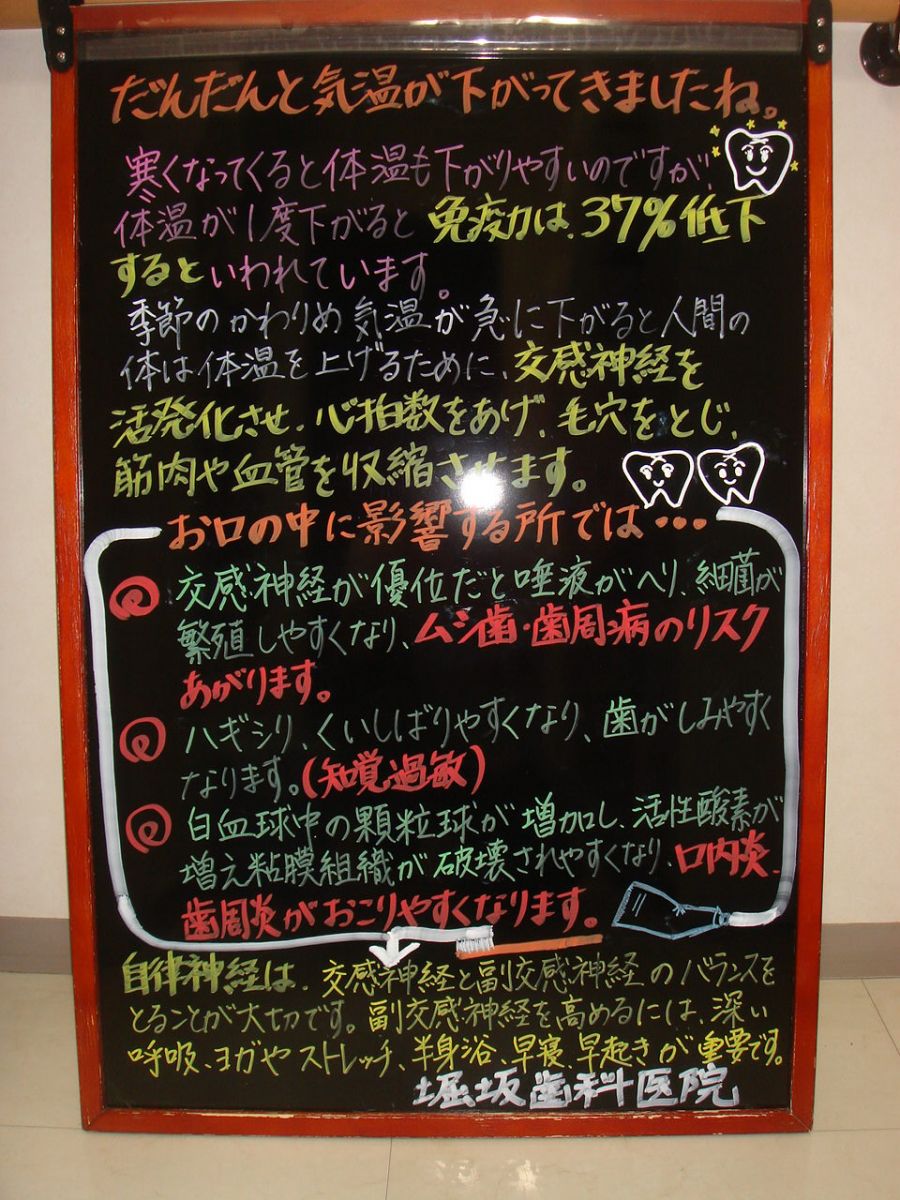 だんだんと気温が下がってきましたね。
寒くなってくると体温も下がりやすいのですが、
体温が1度下がると免疫力は、37%低下
するといわれています。
季節のかわりめ気温が急に下がると人間の
体は体温を上げるために、交感神経を
活発化させ、心拍数をあげ、毛穴をとじ、
筋肉や血管を収縮させます。
お口の中に影響する所では・・・
交感神経が優位だと唾液がへり、細菌が
繁殖しやすくなり、ムシ歯・歯周病のリスク
あがります。
ハギシリ、くいしばりやすくなり、歯がしみやすく
なります。(知覚過敏)
白血球中の顆粒球が増加し、活性酸素が
増え粘膜組織が破壊されやすくなり、口内炎、
歯周炎がおこりやすくなります。
自律神経は、交感神経と副交感神経のバランスを
とることが大切です。副交感神経を高めるには、深い
呼吸、ヨガやストレッチ、半身浴、早寝、早起きが重要です。
堀坂歯科医院